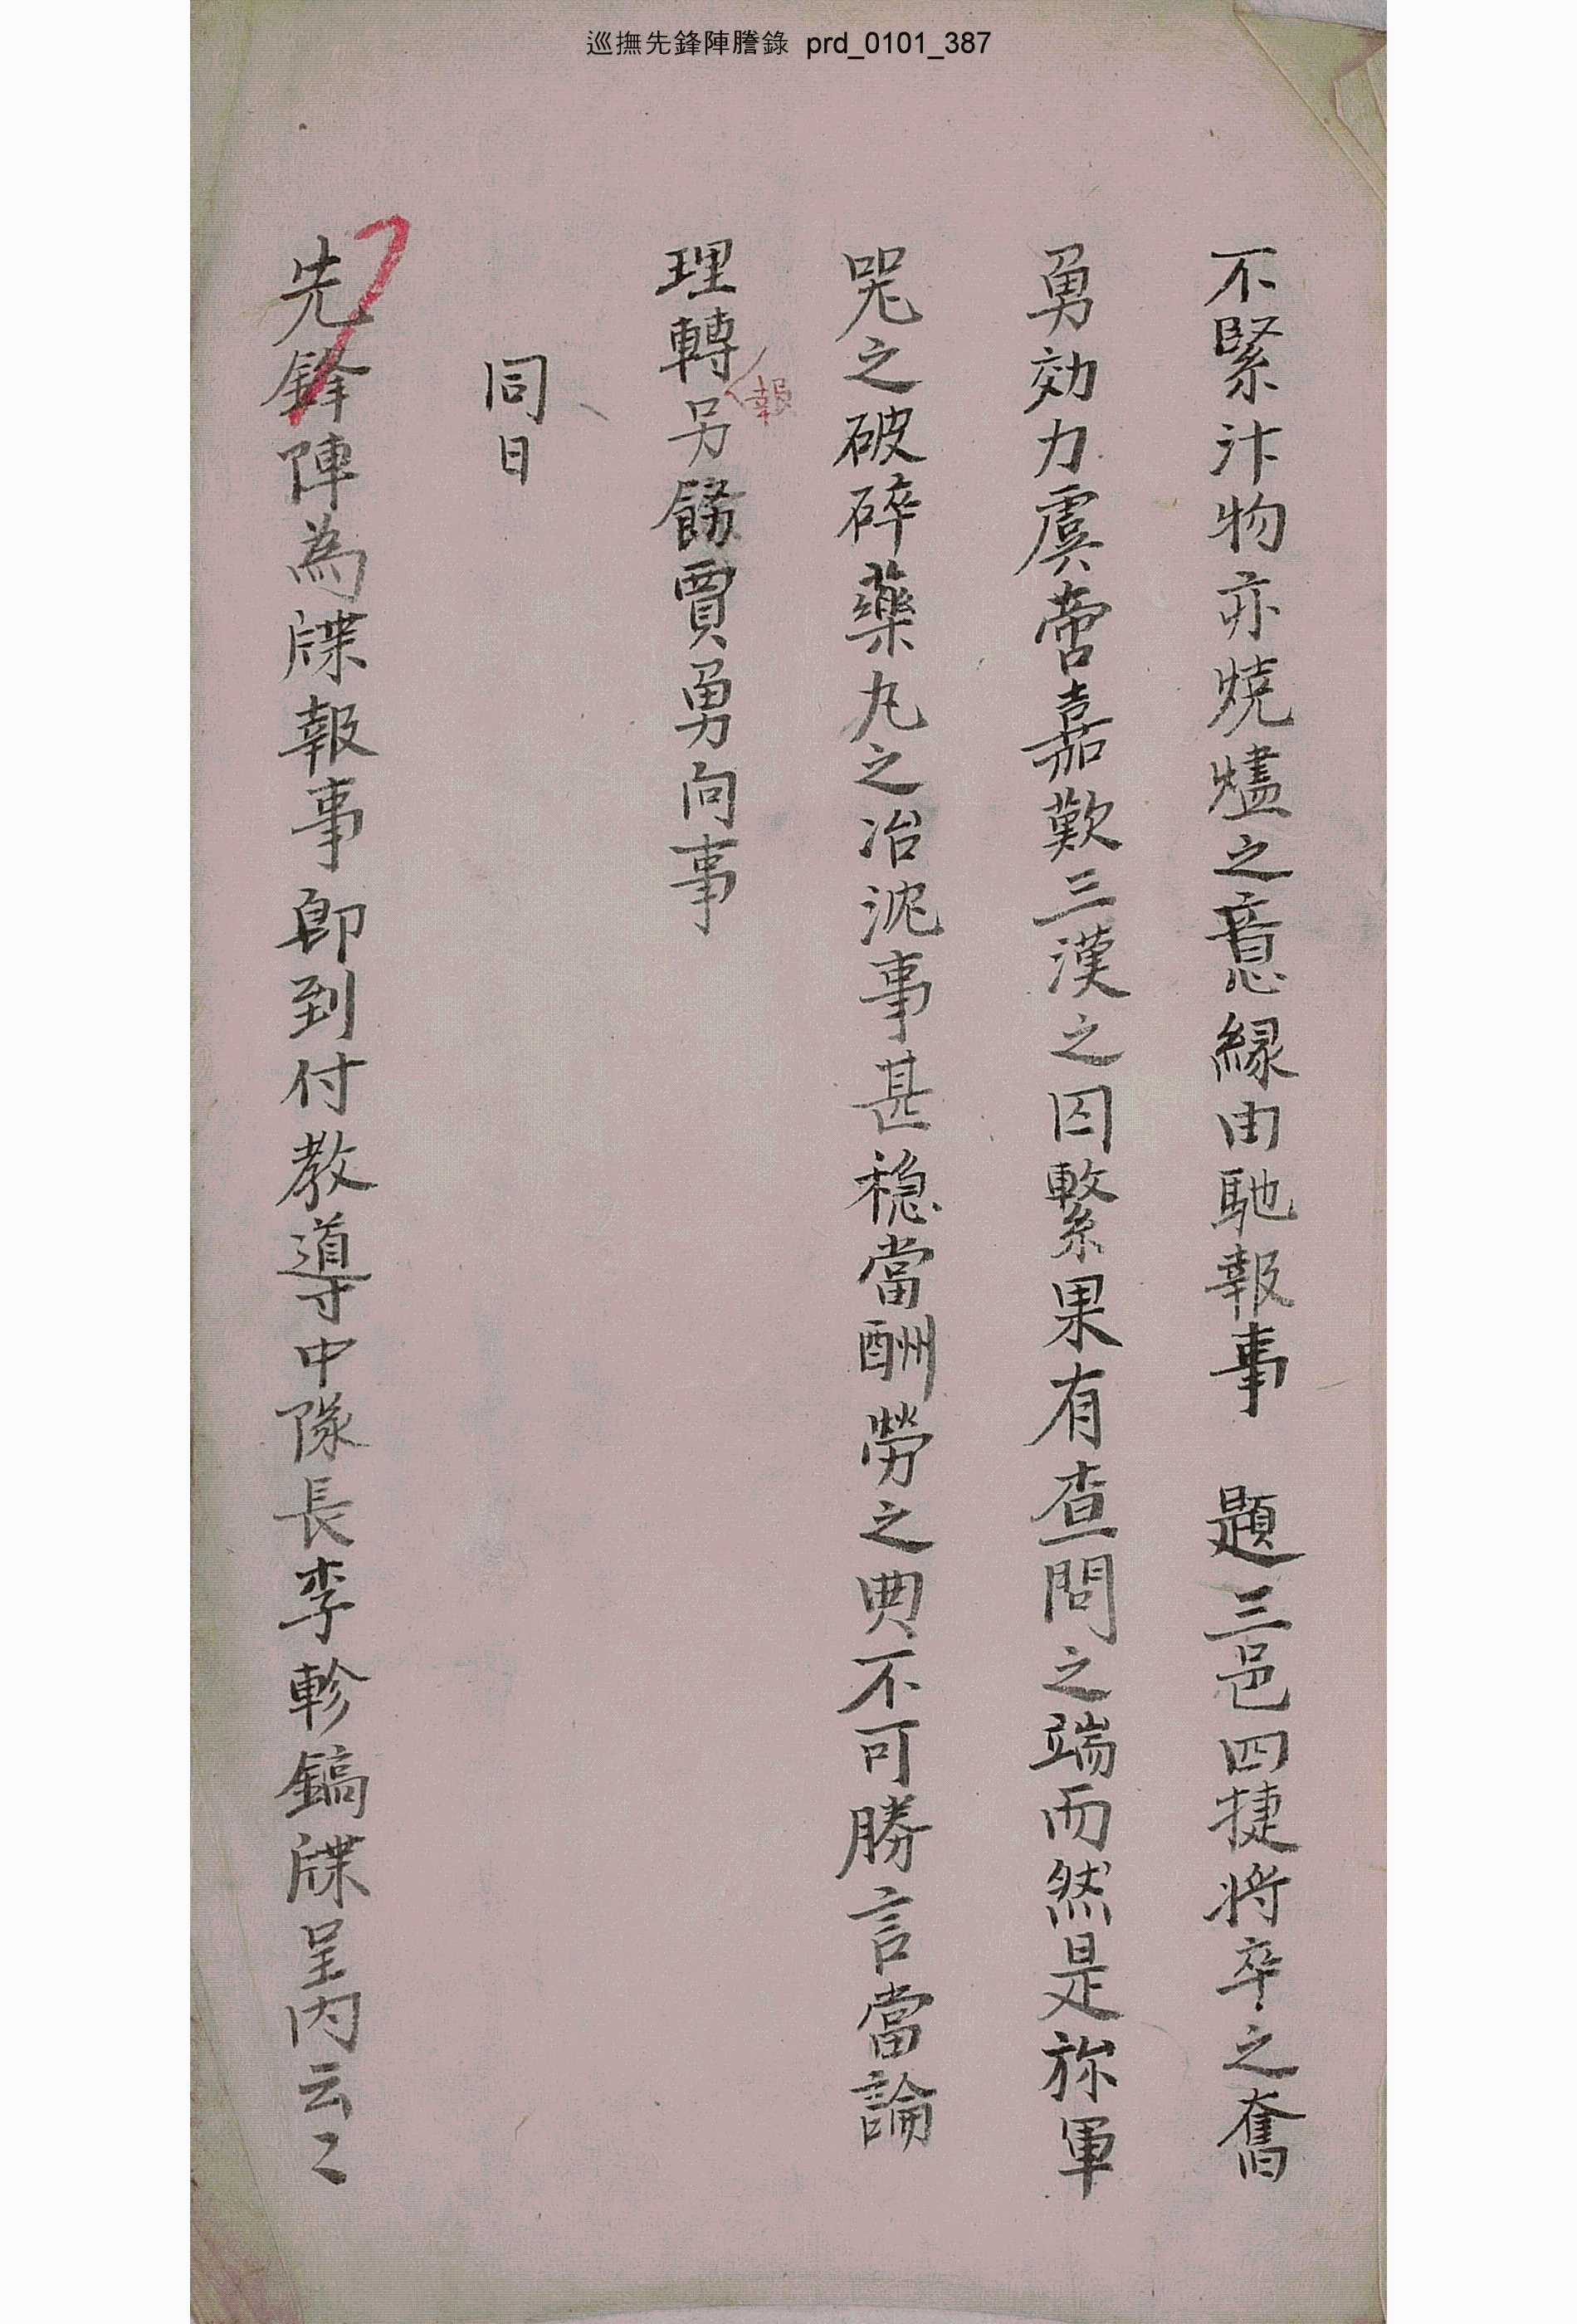 巡撫先鋒陣謄錄 prd_0101_387
不緊汴物亦燒燼之意緣由馳報事 題三邑四捷將卒之奮
勇効力虞啻嘉歎三漢之囚繫果有查問之端而然是旀軍
哭之破碎藥丸之冶沈事甚穩當酬勞之典不可勝言當論
理轉報另飭賈勇向事
同日
先鋒陣為牒報事卽到付敎導中隊長李軫鎬牒呈內云〻